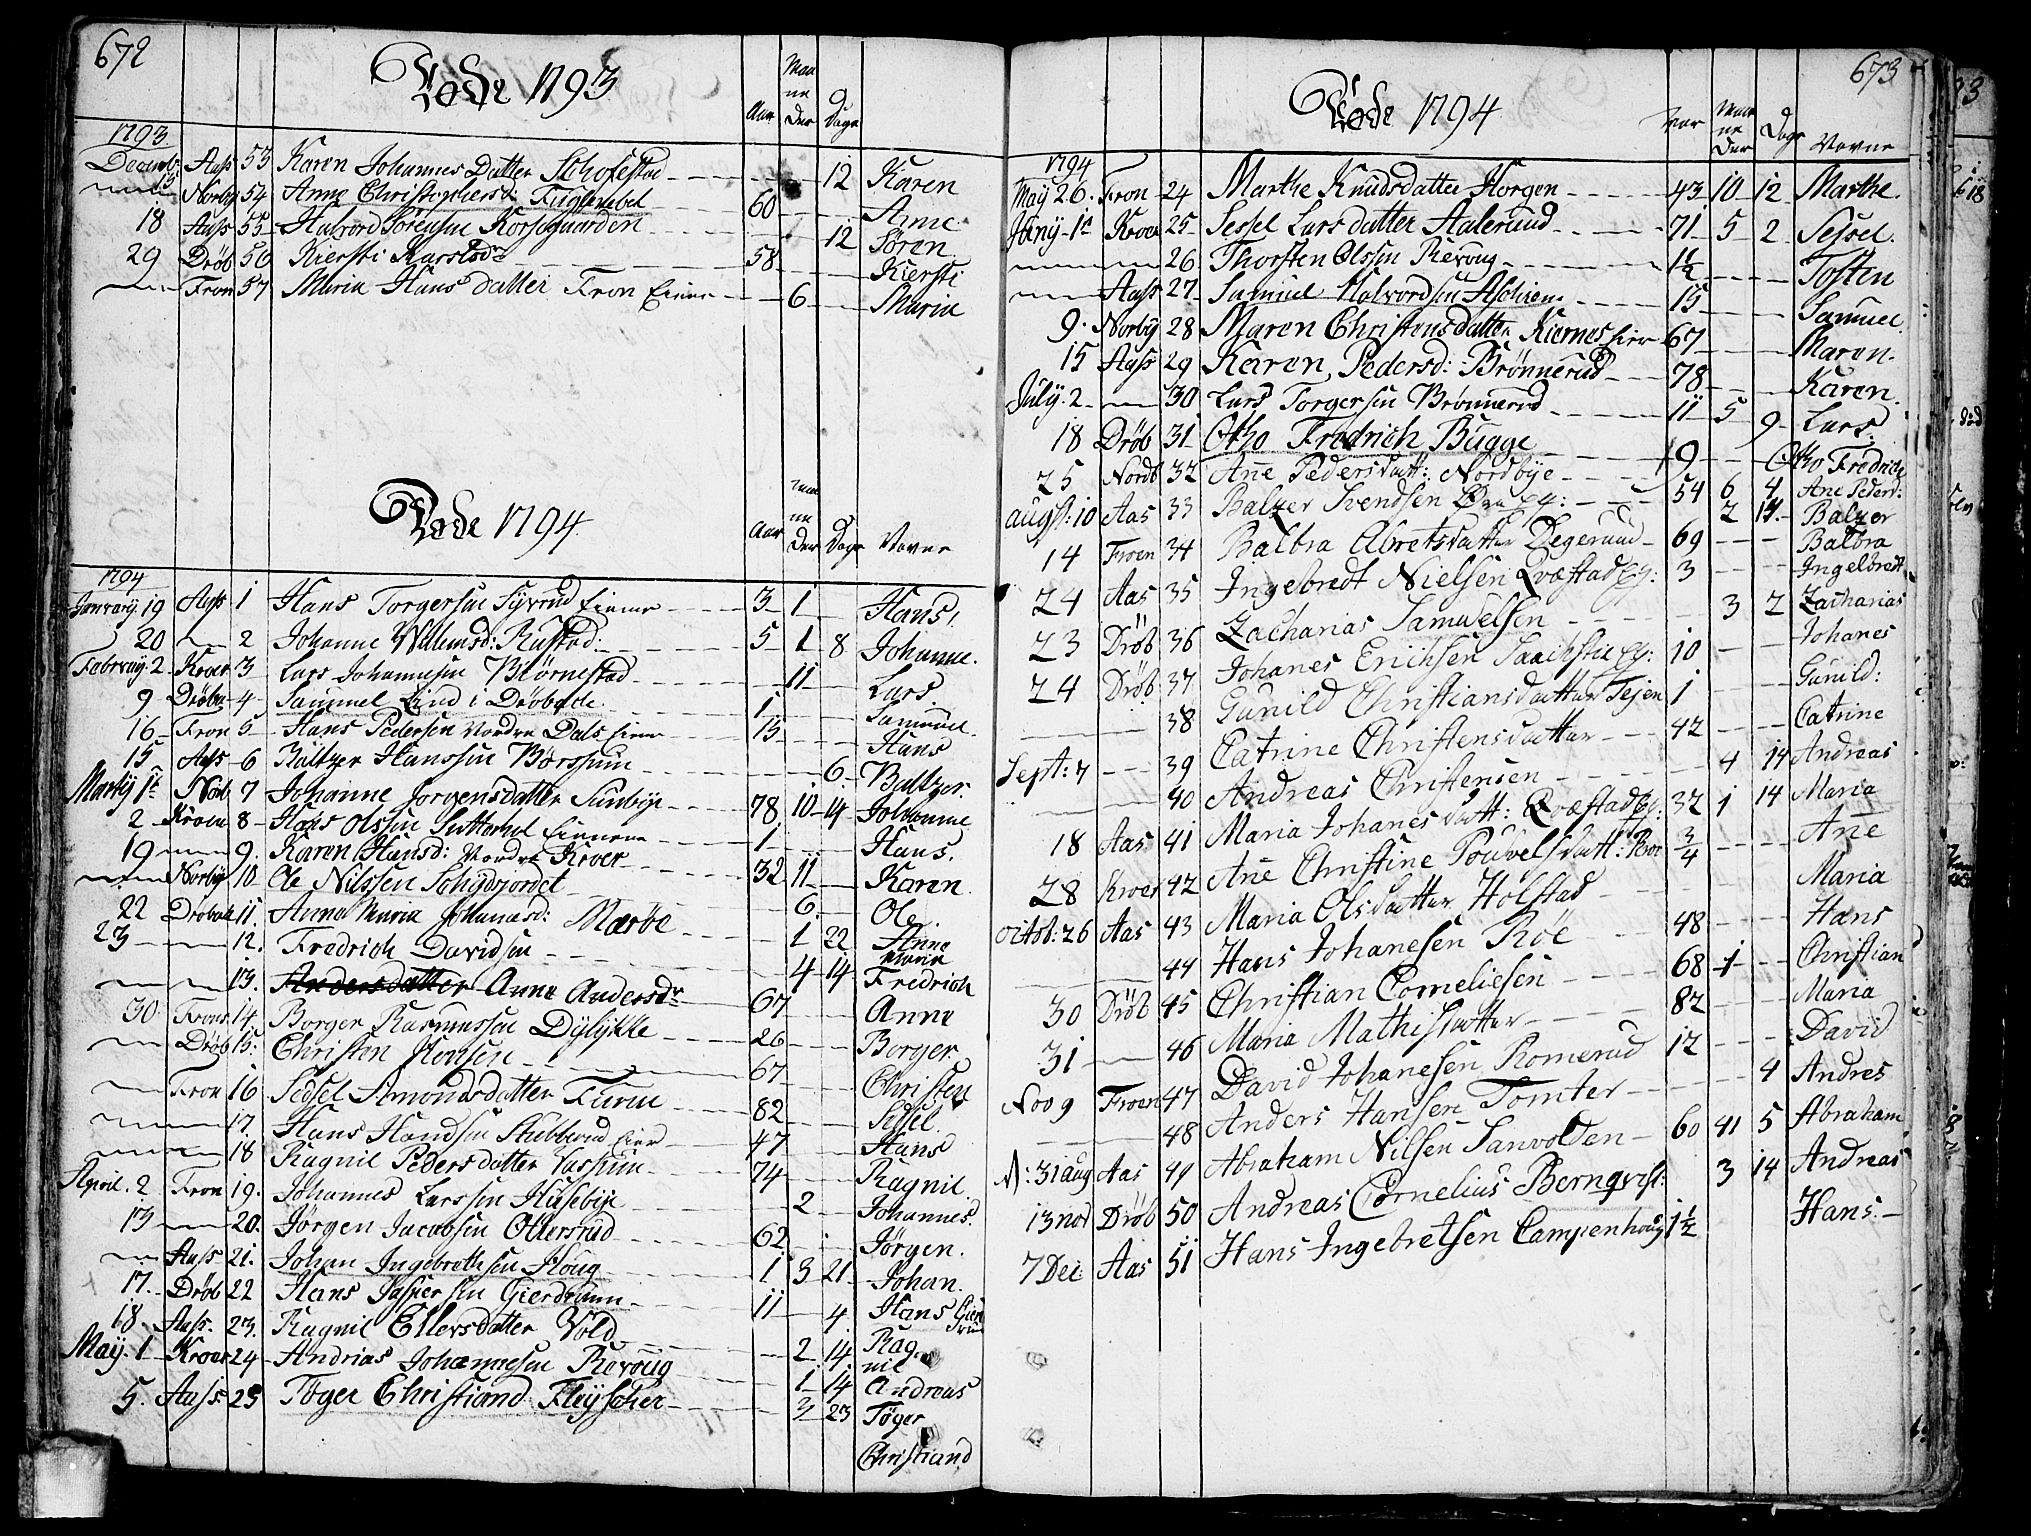 672
Døde 1793
Aar Maaneder Dage
1793
Decemb: 15 Aass 53 Karen Johannes Datter - - - 12 Karen
Norby 54 Anne Christophersd: Fuglesebek 60 - - Anne
18 Aass 55 Halvord Sørensen Korsegaarden - - 12 Søren
29 Drøb 56 Kiersti Karlsdr 58 - - Kiersti
Fron 57 Maria Hans datter Fron Eiere - 6 - Maria
Døde 1794
Aar Maaneder Dage Navne
1794
January 19 Aass 1 Hans Torgersen Syverud Eierne 3 1 Hans
20 2 Johanne Willumsd: Rustad: 5 1 8 Johanne.
Febrvary 2 Kroer 3 Lars Johannesen Biørnestad - 11 - Lars
9 Drøbac 4 Sammel Lind i Drøback 1 - - Sammel
16 Fron 5 Hans Pedersen Nordre Dals Eiere 13 - - Hans
15 Aass 6 Baltzer Hanssen Børssum - - 6 Baltzer
Marty 1te Norb 7 Johanne Jørgensdatter Sundbye 78 10 14 Johanne
2 Kroer 8 Hans Olssen 1 - - Hans.
19 9. Karen Hansd: Nordre Kroer 32 11 - Karen
Norby 10 Ole Nilssen - 6 - Ole
22 Drøbak 11. Anna Maria Johannesd: Marbøe - 1 22 Anne Maria
23 12. Fredrich Davidsen - 4 14 Fredrich
13. Andersdatter Anne Andersdr 67 - - Anne
30 Fron 14. Borger Rasmussen Dyslykke 26 - - Borger
Drøb 15. Christen Hansen 67 - - Christen
Fron 16 Sidsel Amondsdatter Furue 82 - - Sidsel
17. Hans Hansen Skibberud Eier 47 - - Hans
18 Ragnil Pedersdatter Vassum 74 - - Ragnil
April. 2 Fron 19. Johannes Larssen Husebye - 2 - Johannes.
13 20. Jørgen Jacobsen Ottersrud 62 - - Jørgen.
Aass 21. Johan Ingebrethsen Houg 1 3 21 Johan.
17. Drøb 22 Hans Jespersen Gierdrum 11 - 4 Hans Gierdrum
18. Aass. 23. Ragnil Ellersdatter Vold - 2 14. Ragnil
May. 1 Kroer 24 Andrias Johannesen Revoug - 1 14 Andreas
5. Aass. 25 Tøger Christiand Fleysche - 3 23 Tøger Christiand
673
Døde 1794
Aar Maaneder Dage Navne
1794
May 26. Fron 24 Marthe Knudsdatter Horgen 43 10 12 Marthe
Juny 1te Kroer 25 Sessel Lars datter Aalerud 71 5 2 Sessel.
26 Thorsten Olssen Revoug 1½ - - Tosten
Aass 27 Samuel Halvordsen 15 - - Samuel
9. Norby 28 Maren Christensdatter Kiernes Eier 67 - - Maren.
15 Aass 29 Karen Pedersd: Brønnerud 78 - - Karen.
July. 2 30 Lars Torgersen Brønnerud 11 5 9 Lars
18 Drøb 31 Otho Fredrich Bugge 19 - - Otho Fredrich
25 Nordb 32 Ane Pedersdatt: Nordbye 54 6 4 Ane Pedersd:
augst: 10 Aas 33 Balzer Svendsen - 2 14. Balzer
14 Froen 34 Balbra Abretsdatter Degerrud 69 - - Balbra
24 Aas 35 Ingebredt Nielsen Qvæstad Eg: 3 - - Ingebredt
23 Drøb 36 Zacharias Samuelsen - 3 2 Zacharias
24 Drøb 37 Johanes Erichsen Eg: 10 - - Johanes
38 Gunild Christiansdatter Tejen 1 - - Gunild:
Sept: 7 39 Catrine Christensdatter 42 - - Catrine
40 Andreas Christensen - 4 14 Andreas
18 Aas 41 Maria Johanesdatt: Qvæstad Eg: 32 1 14 Maria
28 Kroer 42 Ane Christine Pouvelsdatt: Roe ¾ - - Ane
octob: 26 Aas 43 Maria Olsdatter Holstad - Maria
44 Hans Johanesen Røe 48 - - Hans
30 Drøb 45 Christian Corneliesen 68 1 - Christian
31 46 Maria Mathisdatter 82 - - Maria
Nov 9 Froen 47 David Johanesen Romerud 12 - - David
48 Anders Hansen Tomter - - 4 Andres
N: 31 aug Aas 49 Abraham Nilsen Sanvolden 60 11 5 Abraham
13 nov Drøb 50 Andreas Cornelius Bernqvist: 3 14 Andreas
7 Dec: Aas 51 Hans Ingebretsen Campenhoug 1½ Hans.